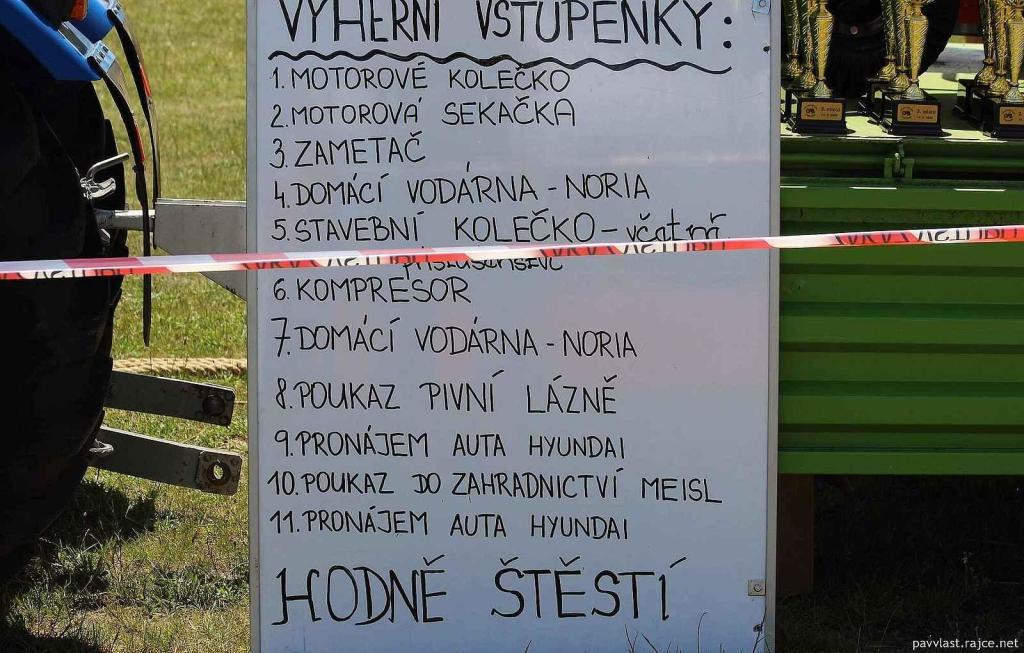 VÝHERNÍ VSTUPENKY:
1. MOTOROVÉ KOLEČKO
2. MOTOROVÁ SEKAČKA
3. ZAMETAČ
4. DOMÁCÍ VODÁRNA - NORIA
5. STAVEBNÍ KOLEČKO - včetně
příslušenství
6. KOMPRESOR
7. DOMÁCÍ VODÁRNA - NORIA
8. POUKAZ PIVNÍ LÁZNĚ
9. PRONÁJEM AUTA HYUNDAI
10. POUKAZ DO ZAHRADNICTVÍ MEISL
11. PRONÁJEM AUTA HYUNDAI
HODNĚ ŠTĚSTÍ
pavvlast.rajce.net